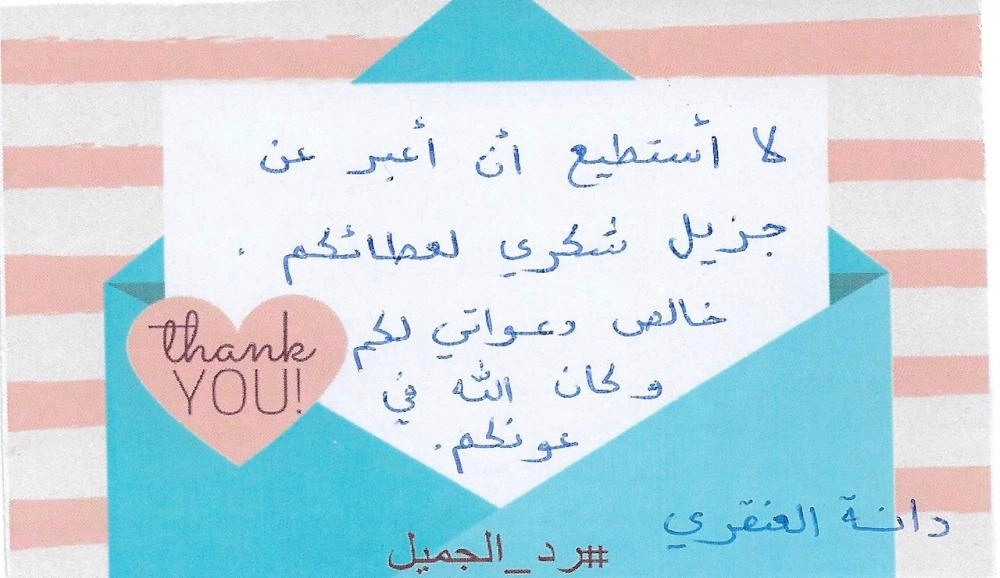 لا أستطيع أن أعبر عن
جزيل شكري لعطائكم .
خالص دعواتي لكم
وكان الله في
عونكم .
thank
YOU!
دانة العنقري
#رد_الجميل